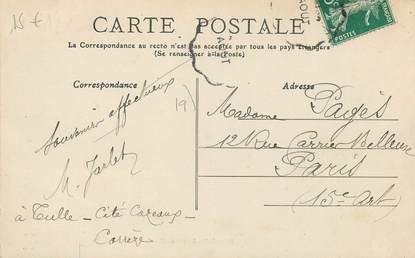 15 f
CARTE POSTALE
La Correspondance au recto n'est pas acceptée par tous les pays étrangers
(Se renseigner à la poste)
Correspondance
Adresse
Souvenir affectueux
M. Jarlet
à Tulle – Cité Cazeaux –
Corrèze
19
Madame Pagès
12 Rue Carrier Belleuse
Paris
(15e Art)
AOUT